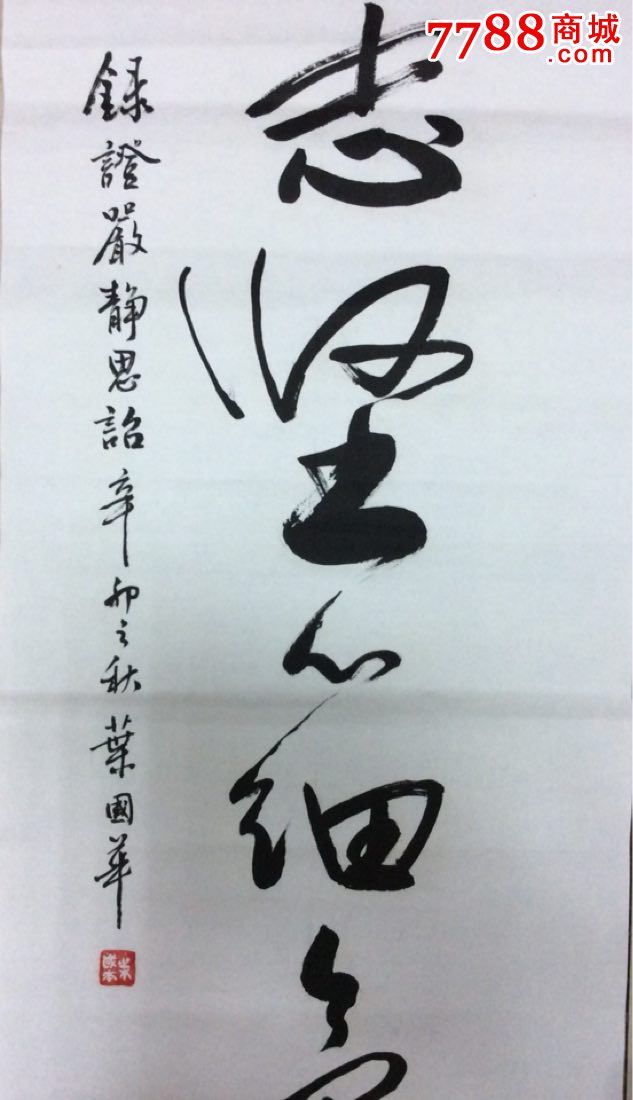 7788商城
.com
志堅心細
錄證嚴靜思語辛卯之秋葉國華